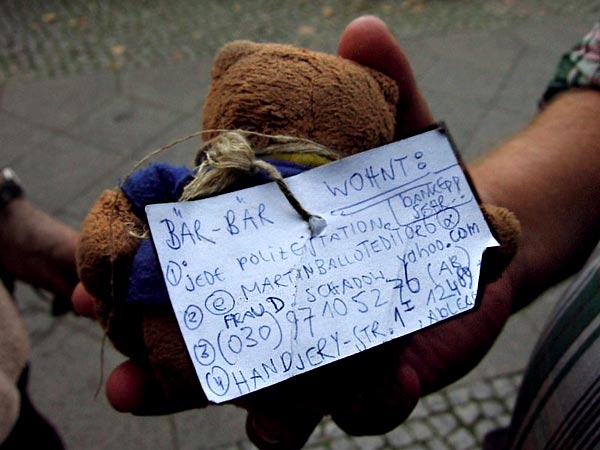 BÄR-BÄR WOHNT:
① JEDE POLIZEISTATION
② @ MARTINBALLOTEDITOR6@yahoo.com
FRAUD SCHADOW
③ (030) 97105276 (AB)
④ HANDJERY-STR. 1 12489